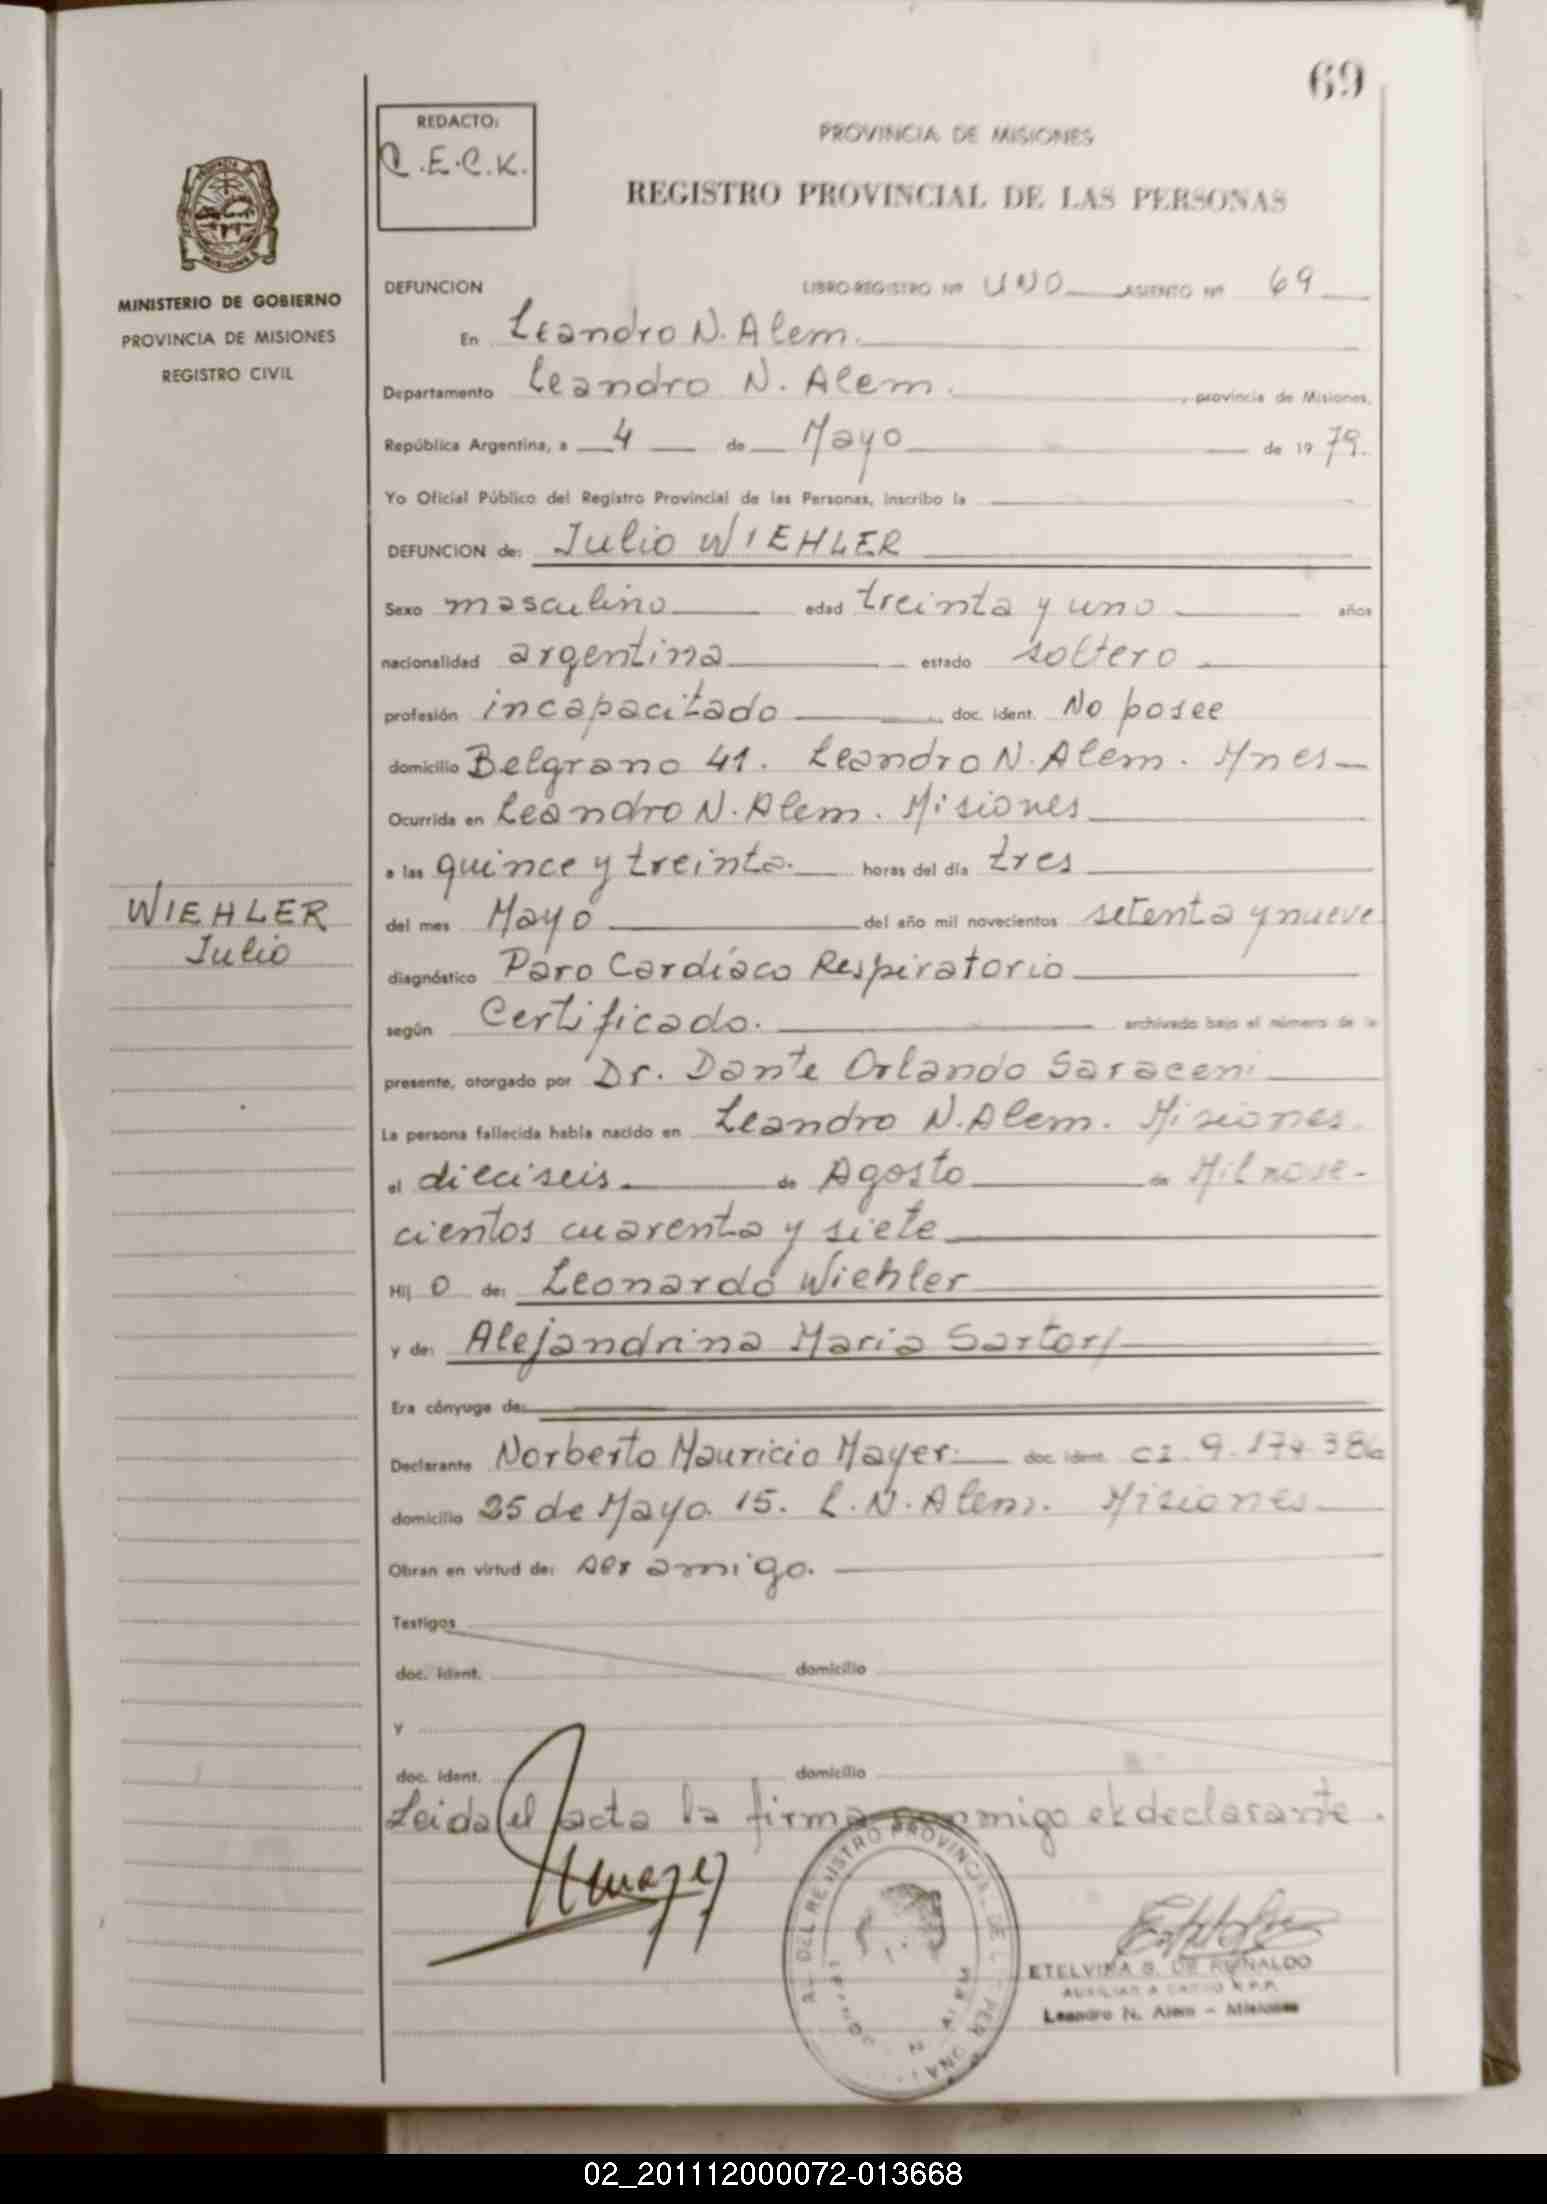 69
REDACTO:
C.E.C.K.
PROVINCIA DE MISIONES
REGISTRO PROVINCIAL DE LAS PERSONAS
MINISTERIO DE GOBIERNO
PROVINCIA DE MISIONES
REGISTRO CIVIL
DEFUNCION LIBRO-REGISTRO Nº UNO ASIENTO Nº 69
En Leandro N. Alem.
Departamento Leandro N. Alem. , provincia de Misiones,
República Argentina, a 4 de Mayo de 1979.
Yo Oficial Público del Registro Provincial de las Personas, inscribo la
DEFUNCION de: Julio WIEHLER
Sexo masculino edad treinta y uno años
nacionalidad argentina estado soltero
profesión incapacitado doc. ident. No posee
domicilio Belgrano 41. Leandro N. Alem. Mnes
Ocurrida en Leandro N. Alem. Misiones
a las quince y treinta. horas del día tres
WIEHLER
Julio
del mes Mayo del año mil novecientos setenta y nueve
diagnóstico Paro Cardíaco Respiratorio
según Certificado. archivado bajo el número de la
presente, otorgado por Dr. Dante Orlando Saraceni
La persona fallecida había nacido en Leandro N. Alem. Misiones.
el dieciseis de Agosto de Mil nove-
cientos cuarenta y siete
Hij o de: Leonardo Wiehler
y de: Alejandrina Maria Sartori
Era cónyuge de:
Declarante Norberto Mauricio Mayer doc. ident. CI. 9.174.386
domicilio 25 de Mayo. 15. L. N. Alem. Misiones
Obran en virtud de: ser amigo.
Testigos
doc. ident. domicilio
y
doc. ident. domicilio
Leida el acta la firma conmigo el declarante.
DEL REGISTRO PROVINCIAL DE L PERSONAS
N. ALEM
ETELVINA G. DE REINALDO
AUXILIAR A CARGO R.P.P.
Leandro N. Alem - Misiones
02_201112000072-013668